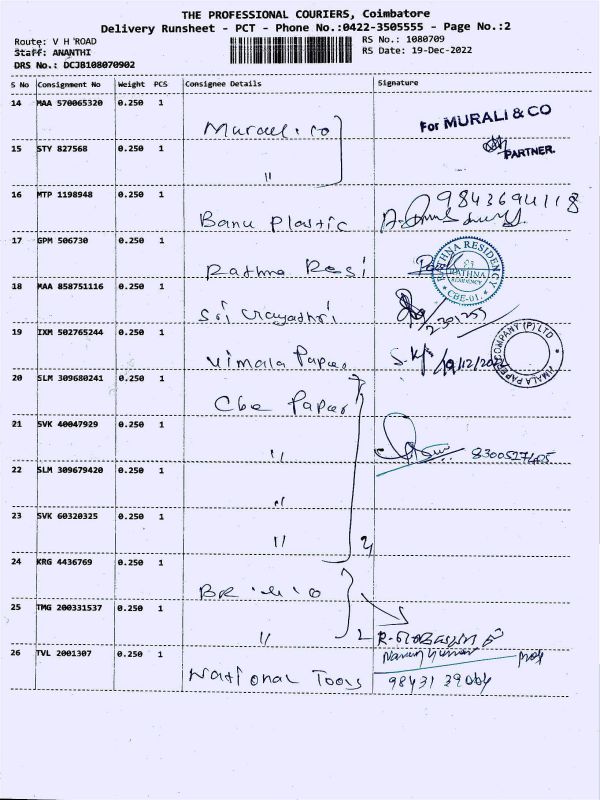 THE PROFESSIONAL COURIERS, Coimbatore
Delivery Runsheet - PCT - Phone No.:0422-3505555 - Page No.:2
Route: V H ROAD
RS No.: 1080709
Staff: ANANTHI
RS Date: 19-Dec-2022
DRS No.: DCJB108070902
S No Consignment No Weight PCS Consignee Details Signature
14 MAA 570065320 0.250 1
For MURALI & CO
PARTNER.
15 STY 827568 0.250 1
"
16 MTP 1198948 0.250 1
Banu Plastic
9843694118
17 GPM 506730 0.250 1
Rathna Resi
RATHNA RESIDENCY
RATHNA
RESIDENCY
CBE-01.
18 MAA 858751116 0.250 1
Sri
19 IXM 502765244 0.250 1
Vimala Paper
20 SLM 309680241 0.250 1
Cbe Paper
21 SVK 40047929 0.250 1
"
22 SLM 309679420 0.250 1
"
23 SVK 60320325 0.250 1
"
24 KRG 4436769 0.250 1
25 TMG 200331537 0.250 1
"
26 TVL 2001307 0.250 1
National Tools